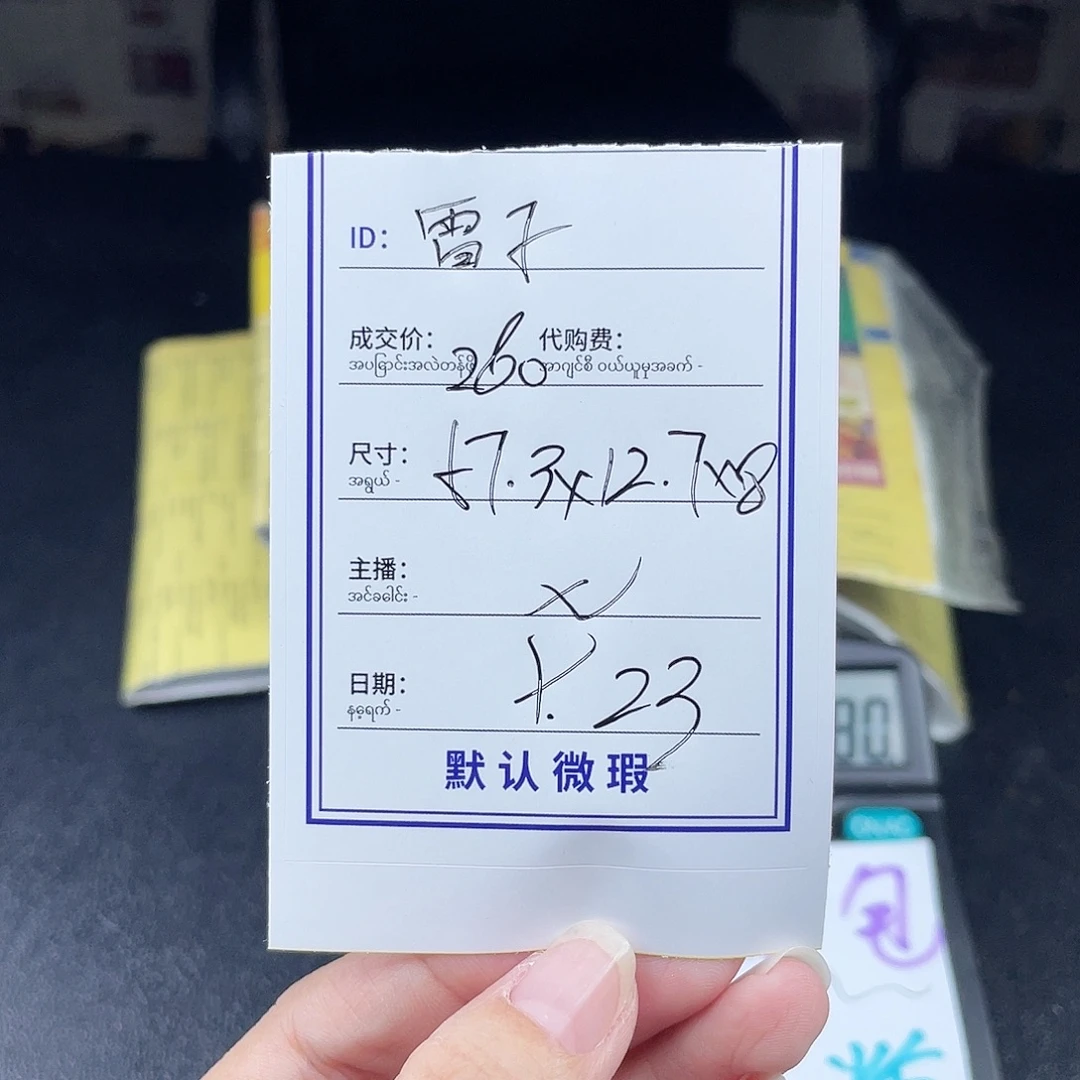 ID: 雷子
成交价: 260 代购费:
အပြောင်းအလဲတန်ဖိုး အာဂျင်စီ ဝယ်ယူမှုအခက် -
尺寸: 57.3x12.7x8
အရွယ် -
主播:
အင်ခေါင်း -
日期: 7.23
နေ့ရက် -
默认微瑕
包